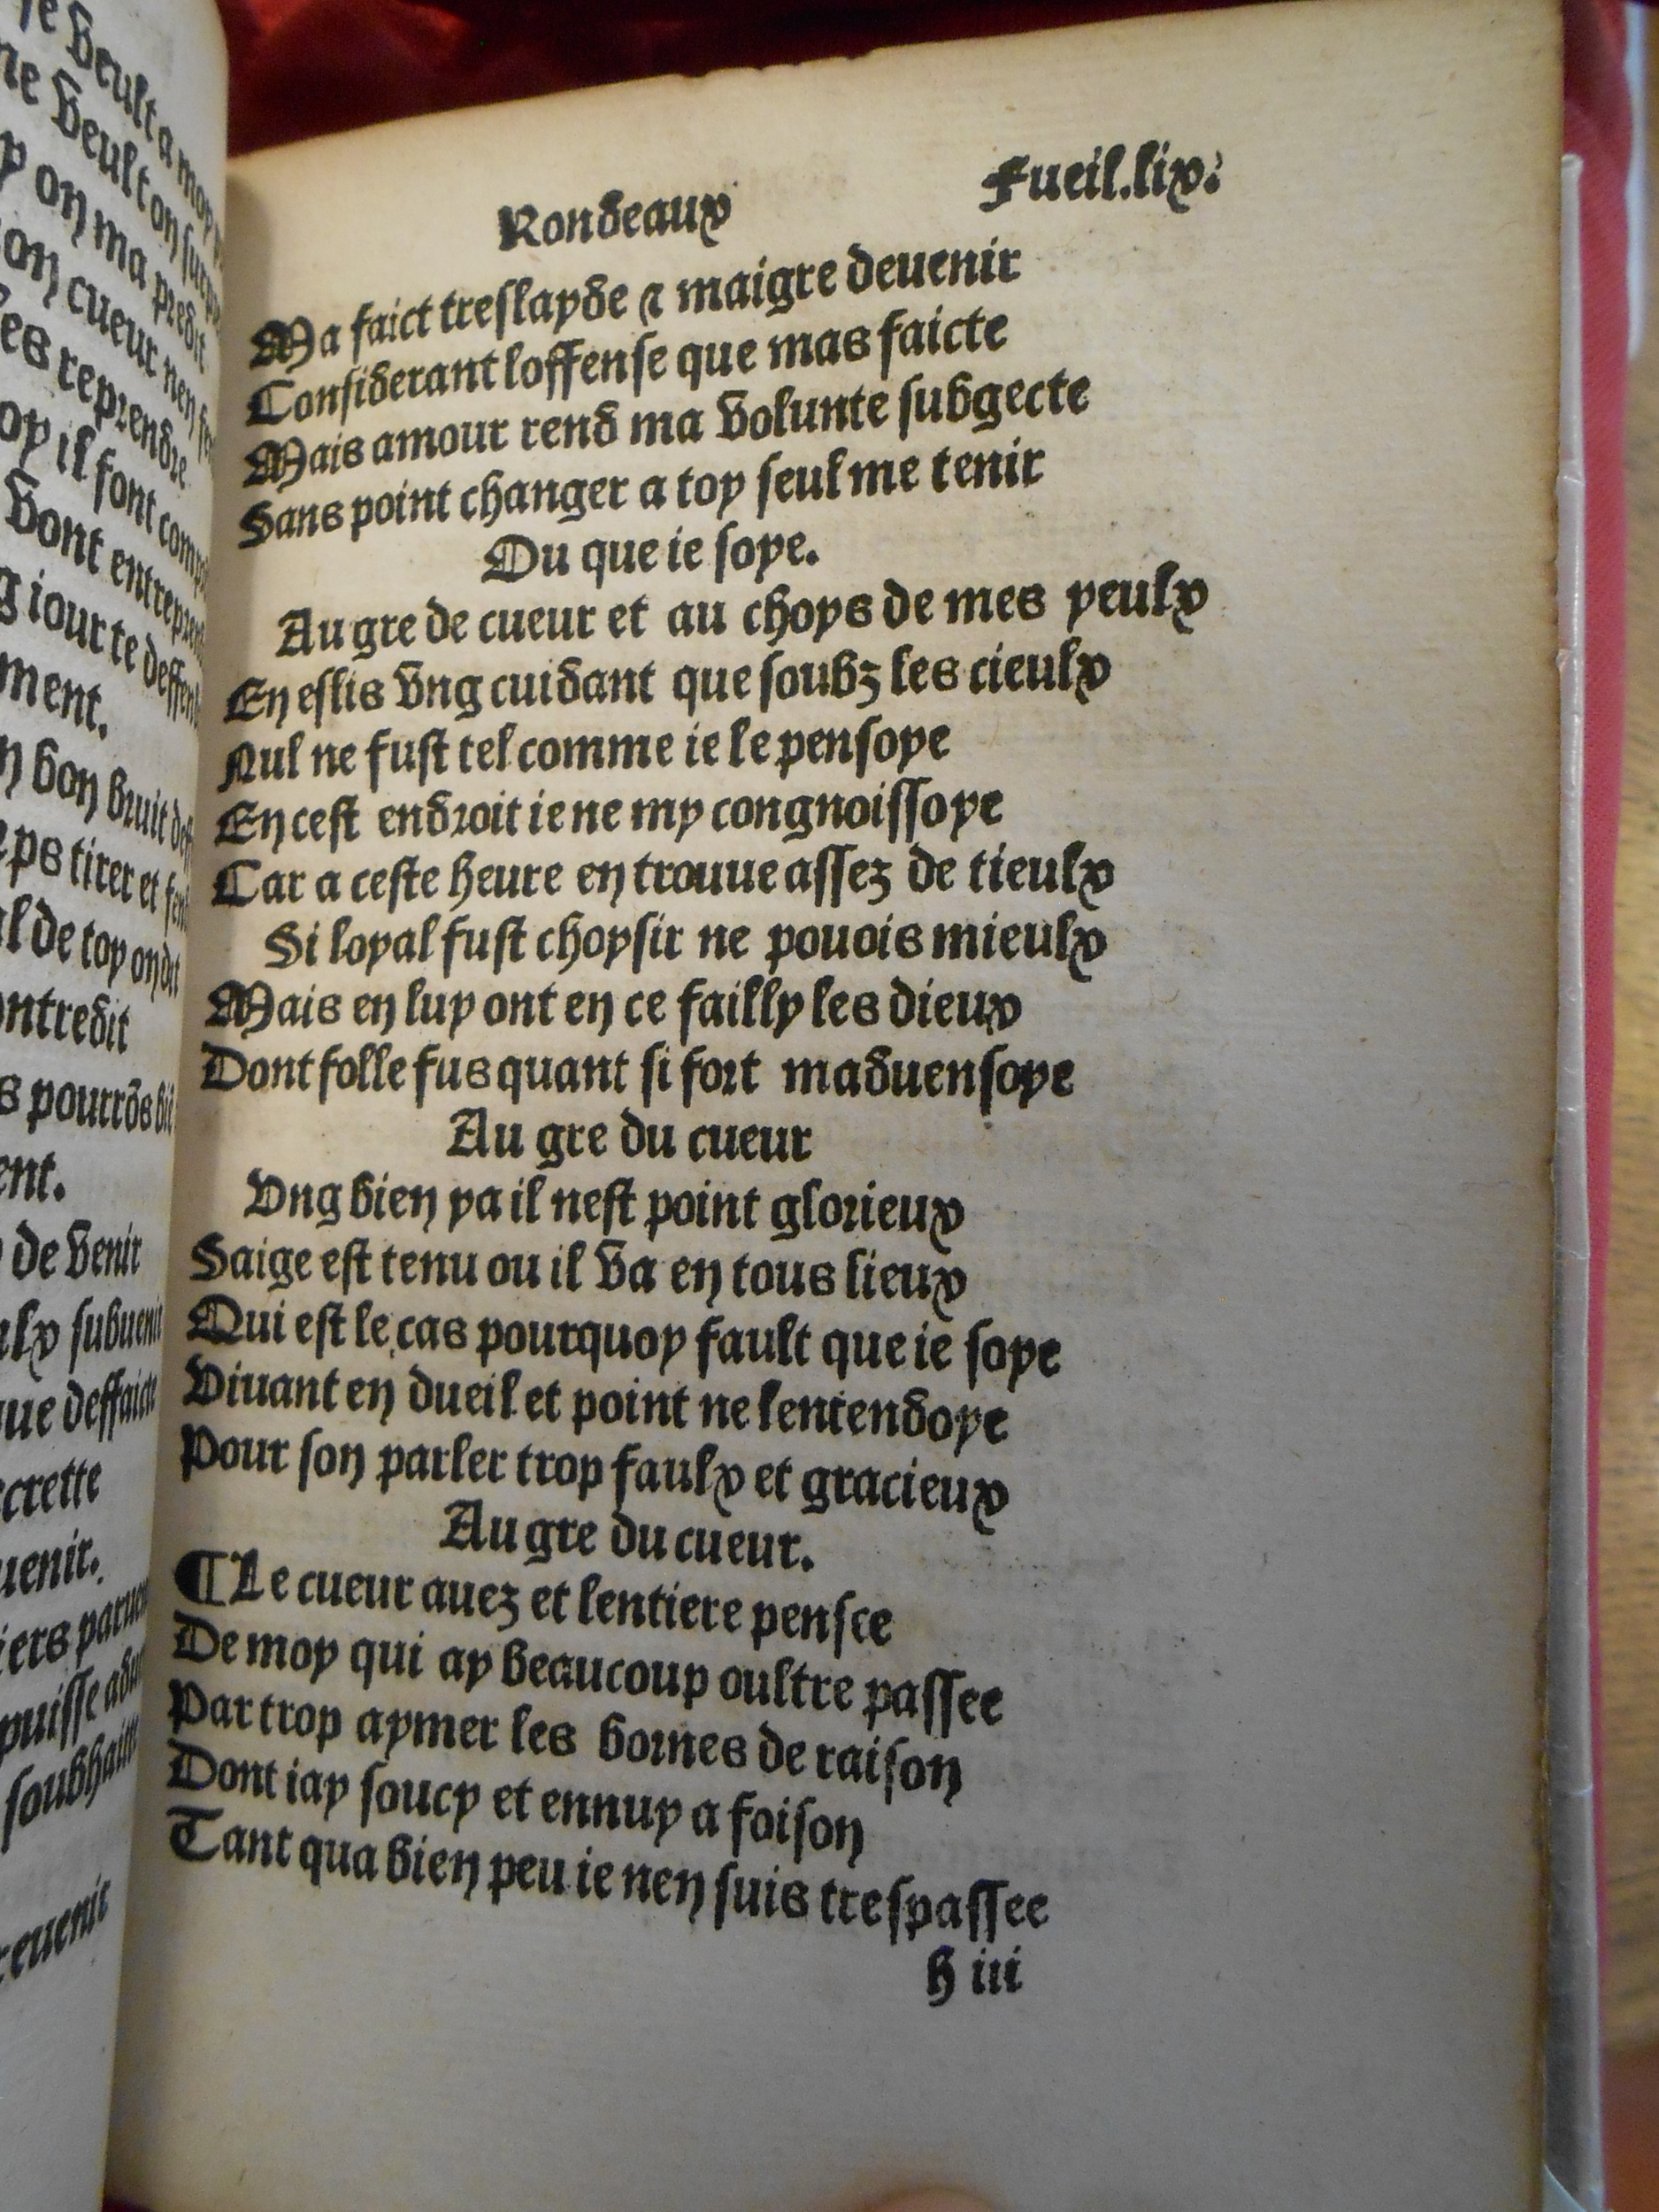 Rondeaux
Fueil.lix.
Ma faict treslayde ⁊ maigre deuenir
Considerant loffense que mas faicte
Mais amour rend ma volunte subgecte
Sans point changer a toy seul me tenir
Ou que ie soye.
Au gre de cueur et au choys de mes yeulx
En eslis vng cuidant que soubz les cieulx
Nul ne fust tel comme ie le pensoye
En cest endroit ie ne my congnoissoye
Car a ceste heure en trouue assez de tieulx
Si loyal fust choysir ne pouois mieulx
Mais en luy ont en ce failly les dieux
Dont folle fus quant si fort maduensoye
Au gre du cueur
Vng bien ya il nest point glorieux
Saige est tenu ou il va en tous lieux
Qui est le cas pourquoy fault que ie soye
Viuant en dueil et point ne lentendoye
Pour son parler trop faulx et gracieux
Au gre du cueur.
¶ Le cueur auez et lentiere pensee
De moy qui ay beaucoup oultre passee
Par trop aymer les bornes de raison
Dont iay soucy et ennuy a foison
Tant qua bien peu ie nen suis trespassee
h iii
ment.
ent.
de venir